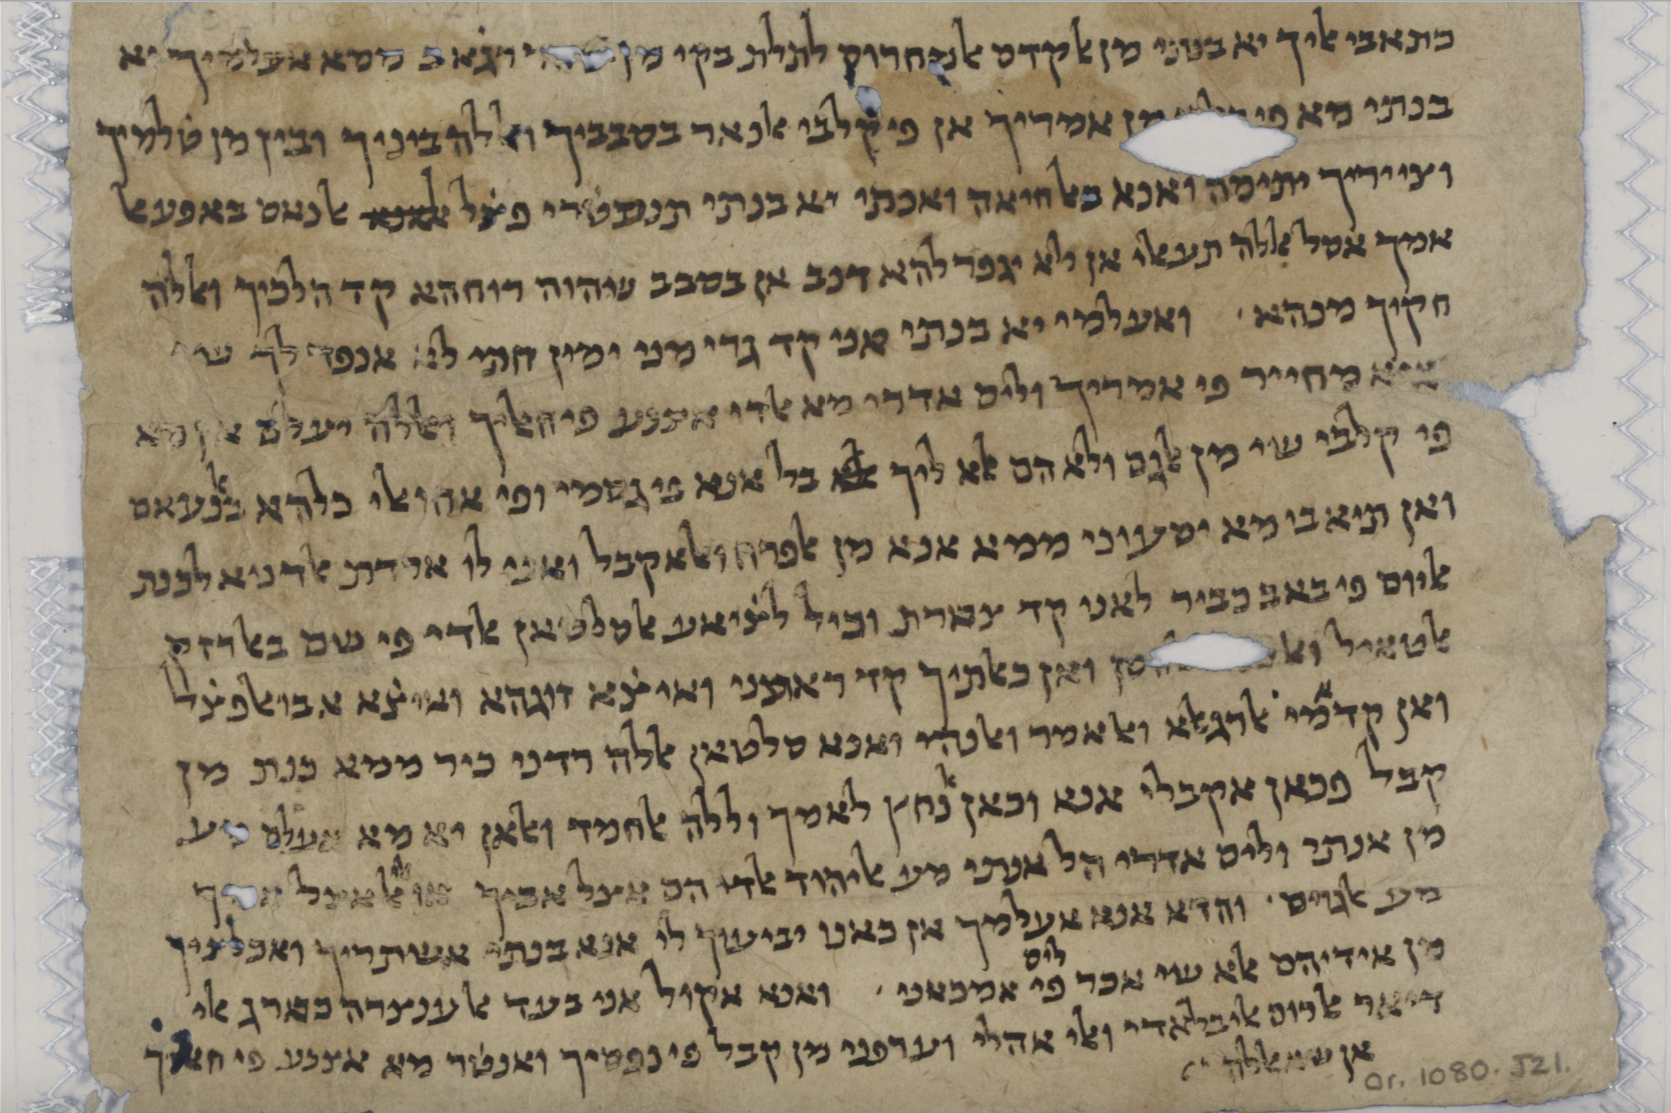 כתאבי אליך יא בנתי מן אלקדס אלמחרוס לתלת בקי מן רגאב ממא אעלמיך יא
בנתי מא פי מן אמריך אן פי קלבי אלנאר בסבביך ואללה ביניך ובין מן טלמיך
וצייריך יתימה ואנא באלחיאה ואכתי יא בנתי תנצטרי פצל אלנאס באפעאל
אמך אסל אללה תעאלי אן לא יגפר להא דנב אן בסבב שהוה רוחהא קד הלכיך ואללה
חקיך מנהא ואעלמי יא בנתי אני קד גרי מני ימין חתי לא אנפד לך שי
אנא מחייר פי אמריך וליס אדרי מא אלדי אצנע פי חאליך ואללה יעלם אן מא
פי קלבי שי מן אלגם ולא הם אלא ליך בל אנא פי גסמי ופי אחואלי כלהא באנעאם
ואן תיאבי מא יסעוני ממא אנא מן אלפרח ואלאקבל ואני לו ארדת אלדניא לכנת
אליום פי באב כביר לאני קד צמרת וכיל לציאע אלסלטאן אלדי פי שם באלרזק
אלטאיל ואן כאלתיך קד ראתני ואיצא זוגהא ואיצא אבו אלפצל
ואן קדאמי אלרגאלא ואלאמר ואלנהי ואנא סלטאן אללה רדני כיר ממא כנת מן
קבל פכאן אקבאלי אנא וכאן אנחץ לאמך וללה אלחמד ואלאן יא מא אעלם מע
מן אנתי וליס אדרי הל אנתי מע אליהוד אלדי הם אצל אביך או אלאצל אמך
מע אלגוים והדא אנא אעלמך אן כאנו יביעוך לי אנא בנתי אשתריך ואכלציך
מן אידיהם אלא שי אכר ליס פי אמכאני ואנא אקול אני בעד אלענצרה כארג אלי
דיאר אלרום אלי בלאדי ואלי אהלי וערפני מן קבל פי נפסיך ואנטר מא אצנע פי חאליך
אן שא אללה
Or. 1080. J21.